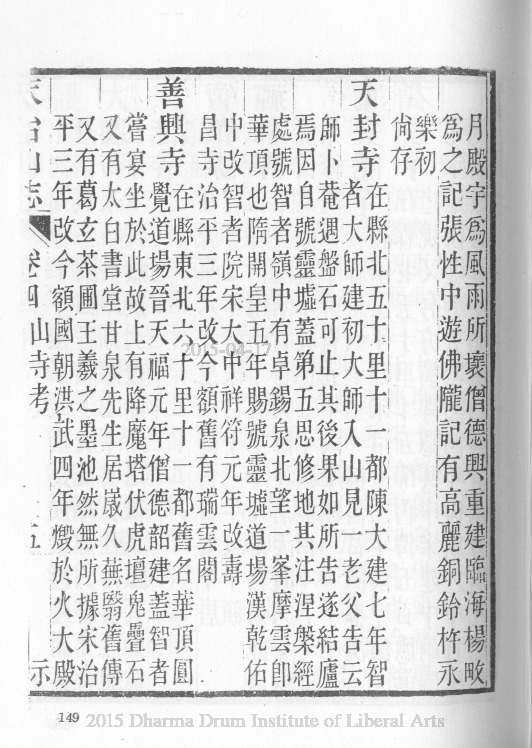 月殿宇爲風雨所壞僧德興重建臨海楊畋
爲之記張性中遊佛隴記有高麗銅鈴杵永
樂初
尙存
天封寺在縣北五十里十一都陳大建七年智
者大師建初大師入山見一老父告云
師卜菴遇盤石可止其後果如所告遂結廬
焉因自號靈墟蓋第五思修地其注涅槃經
處號智者嶺中有卓錫泉北望一峯摩雲卽
華頂也隋開皇五年賜號靈墟道場漢乾佑
中改智者院宋大中祥符元年改壽
昌寺治平三年改今額舊有瑞雲閣
善興寺在縣東北六十里十一都舊名華頂圓
覺道場晉天福元年僧德韶建蓋智者
嘗宴坐於此故上有降魔塔伏虎壇鬼疊石
又有太白書堂甘泉先生居嵗久蕪翳舊傳
又有葛玄茶圃王羲之墨池然無所據宋治
平三年改今額國朝洪武四年燬於火大殿
天台山志 卷四 山寺考
149
2015 Dharma Drum Institute of Liberal Arts